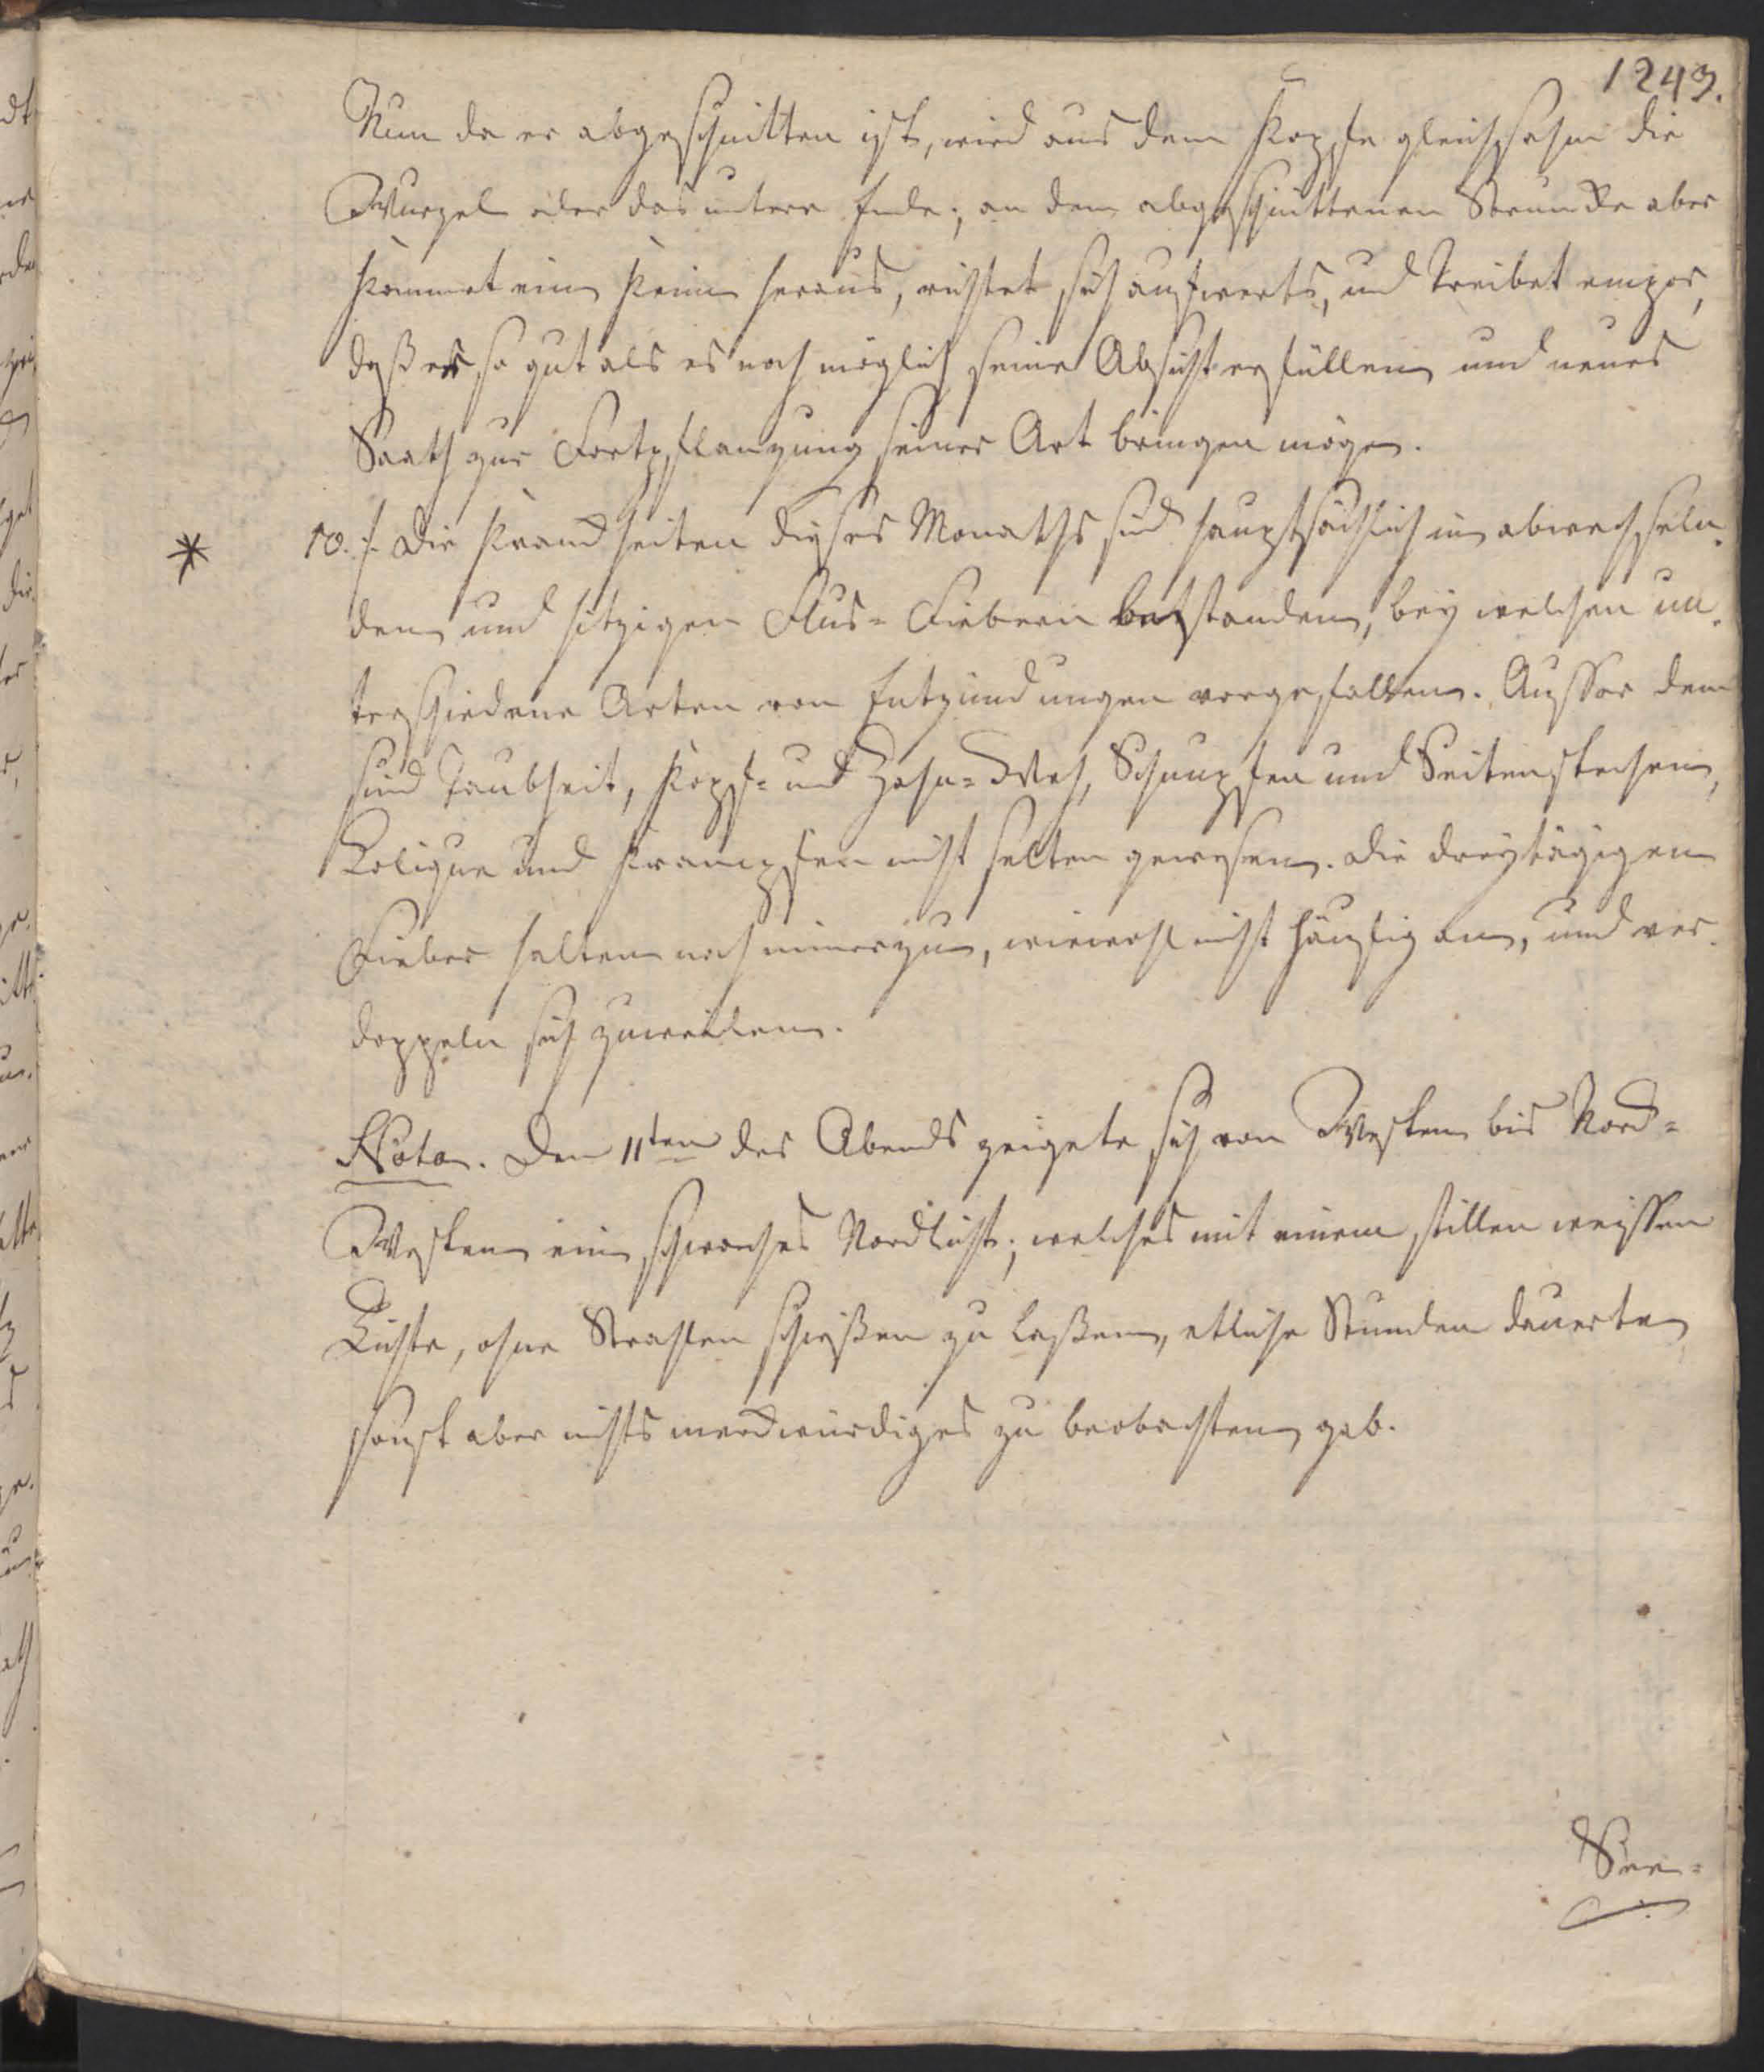 1243.
Nun da er abgeschnitten ist, wird aus dem Kopfe gleichsahm die
Wurzel oder das untere Ende; an dem abgeschnittenen Strunke aber
kommet ein Keim heraus, richtet sich aufwerts, und treibet empor,
daß er, so gut als es noch möglich seine Absicht erfüllen und neues
Saath zur Fortpflanzung seiner Art bringen möge.
* 10. f. Die Krankheiten dieses Monaths sind hauptsächlich in abwechseln-
den und hitzigen Flus- Fiebern bestanden, bey welchen un-
terschiedene Arten von Entzündungen vorgefallen. Ausser dem
sind Taubheit, Kopf- und Zahn-Weh, Schnupfen und Seitenstechen,
Colique und Krampfen nicht selten gewesen. Die dreytägigen
Fieber halten noch immerzu, wiewohl nicht häufig an, und ver-
doppeln sich zuweilen.
Nota. Den 11ten des Abends zeigete sich von Westen bis Nord-
Westen ein schwaches Nordlicht; welches mit einem stillen weissen
Lichte, ohne Strahlen schießen zu laßen, etliche Stunden dauerte
sonst aber nichts merckwürdiges zu beobachten gab.